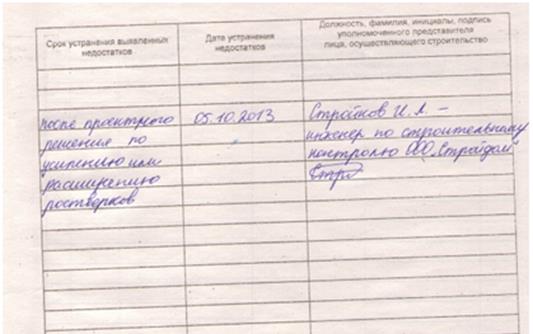 Срок устранения выявленных
недостатков
Дата устранения
недостатков
Должность, фамилия, инициалы, подпись
уполномоченного представителя
лица, осуществляющего строительство
после проектного
решения по
усилению или
расширению
ростверков
05.10.2013
Стройков И.А. –
инженер по строительному
контролю ООО „Стройдом"
Стро